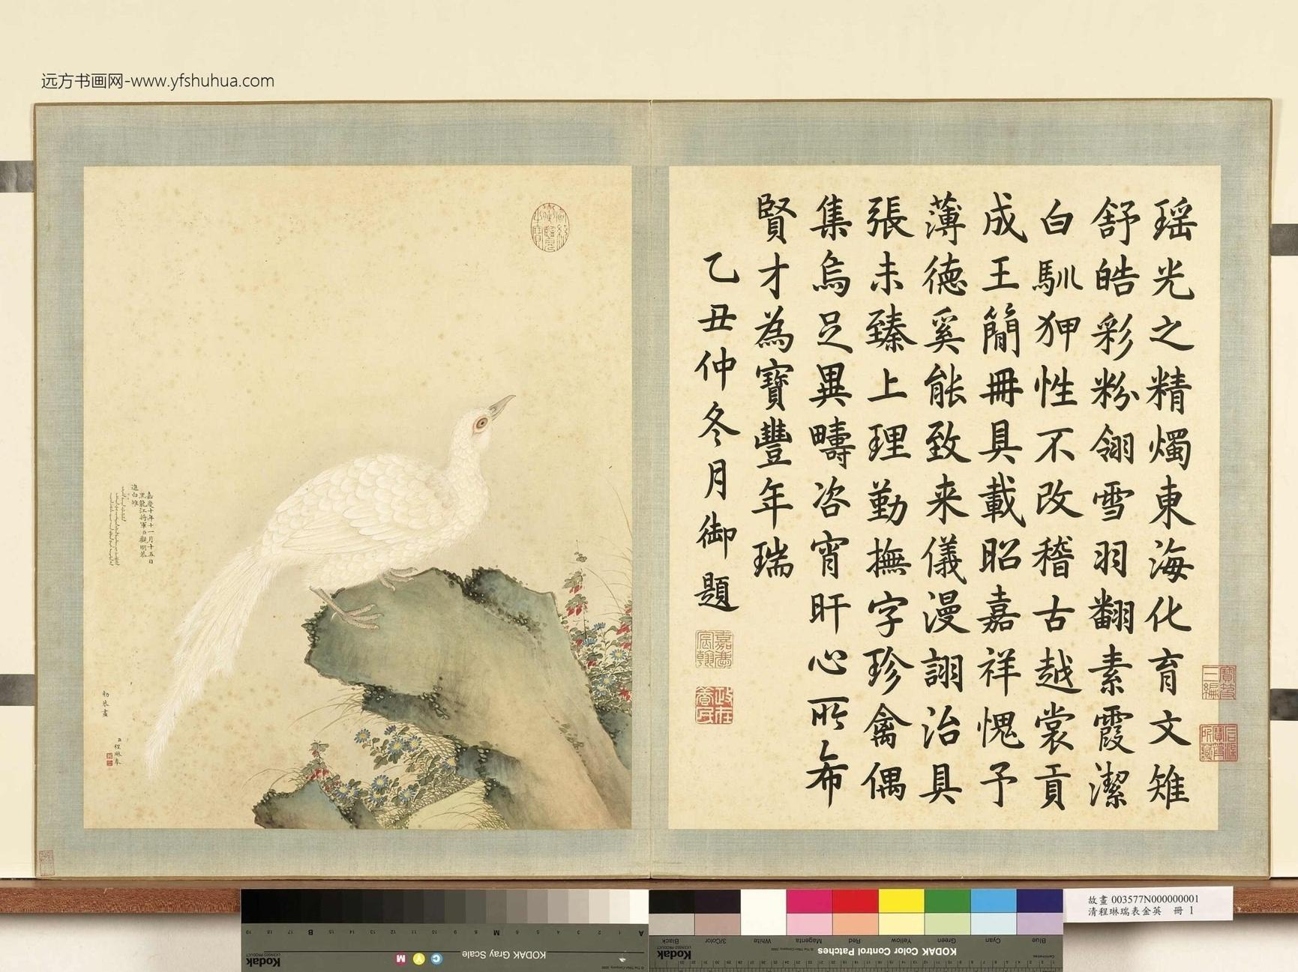 远方书画网-www.yfshuhua.com
瑶光之精燭東海化育文雉
舒皓彩粉翎雪羽翻素霞潔
白馴狎性不改稽古越裳貢
成王簡冊具載昭嘉祥愧予
薄德奚能致来儀漫詡治具
張未臻上理勤撫字珍禽偶
集烏足異疇咨宵旰心所布
賢才為寶豐年瑞
乙丑仲冬月御題
嘉慶十年十一月十五日
進白雉
臣程琳奉
勅恭畫
故畫 003577N000000001
清程琳瑞表金英 冊 1
KODAK Gray Scale
Kodak
C
Y
M
A
M
B
KODAK Color Control Patches
Kodak
Blue
Cyan
Green
Yellow
Red
Magenta
White
3/Color
Black